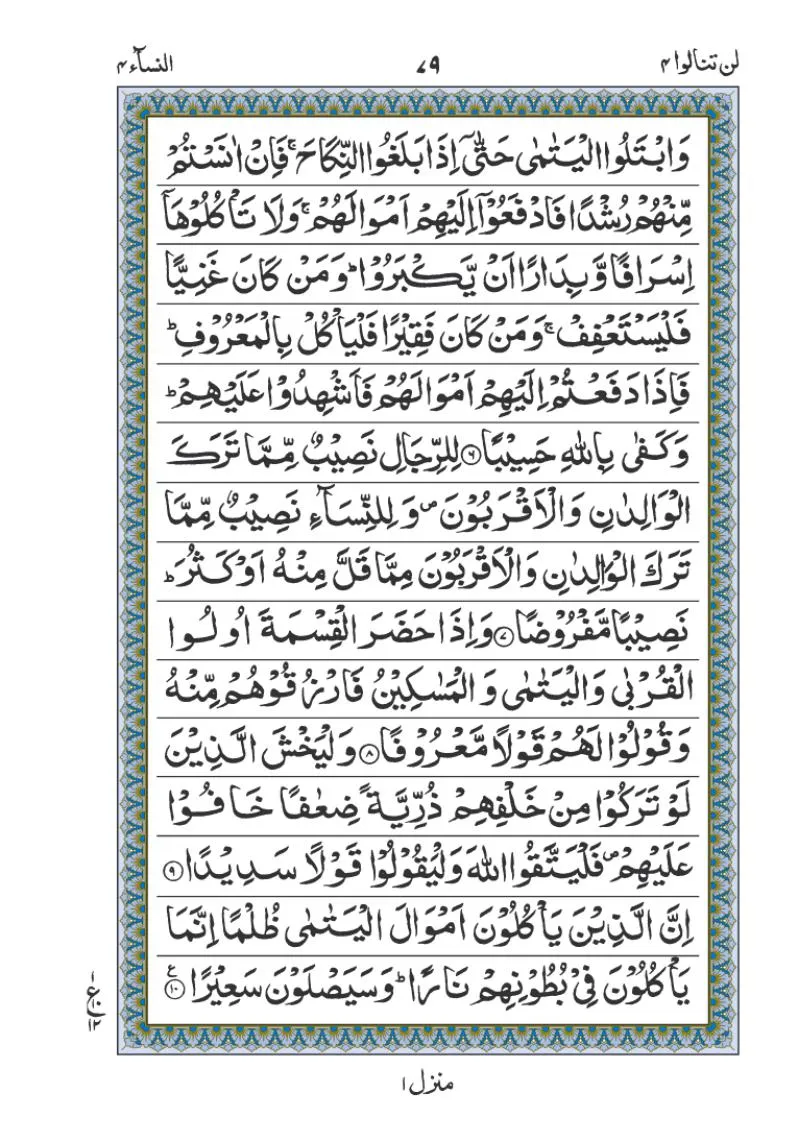 لن تنالوا ۴ ۷۹ النسآء ۴
وَابۡتَلُوا الۡيَتٰمٰى حَتّٰىٓ اِذَا بَلَغُوا النِّكَاحَ‌ ۚ فَاِنۡ اٰنَسۡتُمۡ
مِّنۡهُمۡ رُشۡدًا فَادۡفَعُوۡۤا اِلَيۡهِمۡ اَمۡوَالَهُمۡ‌ ۚ وَلَا تَاۡكُلُوۡهَاۤ
اِسۡرَافًا وَّبِدَارًا اَنۡ يَّكۡبَرُوۡا‌ ؕ وَمَنۡ كَانَ غَنِيًّا
فَلۡيَسۡتَعۡفِفۡ‌ ۚ وَمَنۡ كَانَ فَقِيۡرًا فَلۡيَاۡكُلۡ بِالۡمَعۡرُوۡفِ‌ ؕ
فَاِذَا دَفَعۡتُمۡ اِلَيۡهِمۡ اَمۡوَالَهُمۡ فَاَشۡهِدُوۡا عَلَيۡهِمۡ‌ ؕ
وَكَفٰى بِاللّٰهِ حَسِيۡبًا ۶ لِلرِّجَالِ نَصِيۡبٌ مِّمَّا تَرَكَ
الۡوَالِدٰنِ وَالۡاَقۡرَبُوۡنَ ۖ وَلِلنِّسَآءِ نَصِيۡبٌ مِّمَّا
تَرَكَ الۡوَالِدٰنِ وَالۡاَقۡرَبُوۡنَ مِمَّا قَلَّ مِنۡهُ اَوۡ كَثُرَ ؕ
نَصِيۡبًا مَّفۡرُوۡضًا ۷ وَاِذَا حَضَرَ الۡقِسۡمَةَ اُولُوا
الۡقُرۡبٰى وَالۡيَتٰمٰى وَالۡمَسٰكِيۡنُ فَارۡزُقُوۡهُمۡ مِّنۡهُ
وَقُوۡلُوۡا لَهُمۡ قَوۡلًا مَّعۡرُوۡفًا ۸ وَلۡيَخۡشَ الَّذِيۡنَ
لَوۡ تَرَكُوۡا مِنۡ خَلۡفِهِمۡ ذُرِّيَّةً ضِعٰفًا خَافُوۡا
عَلَيۡهِمۡ ۖ فَلۡيَتَّقُوا اللّٰهَ وَلۡيَقُوۡلُوۡا قَوۡلًا سَدِيۡدًا ۹
اِنَّ الَّذِيۡنَ يَاۡكُلُوۡنَ اَمۡوَالَ الۡيَتٰمٰى ظُلۡمًا اِنَّمَا
يَاۡكُلُوۡنَ فِىۡ بُطُوۡنِهِمۡ نَارًا‌ ؕ وَسَيَصۡلَوۡنَ سَعِيۡرًا ۱۰ ع
۱
ع ۱۰
۱۲
منزل ۱